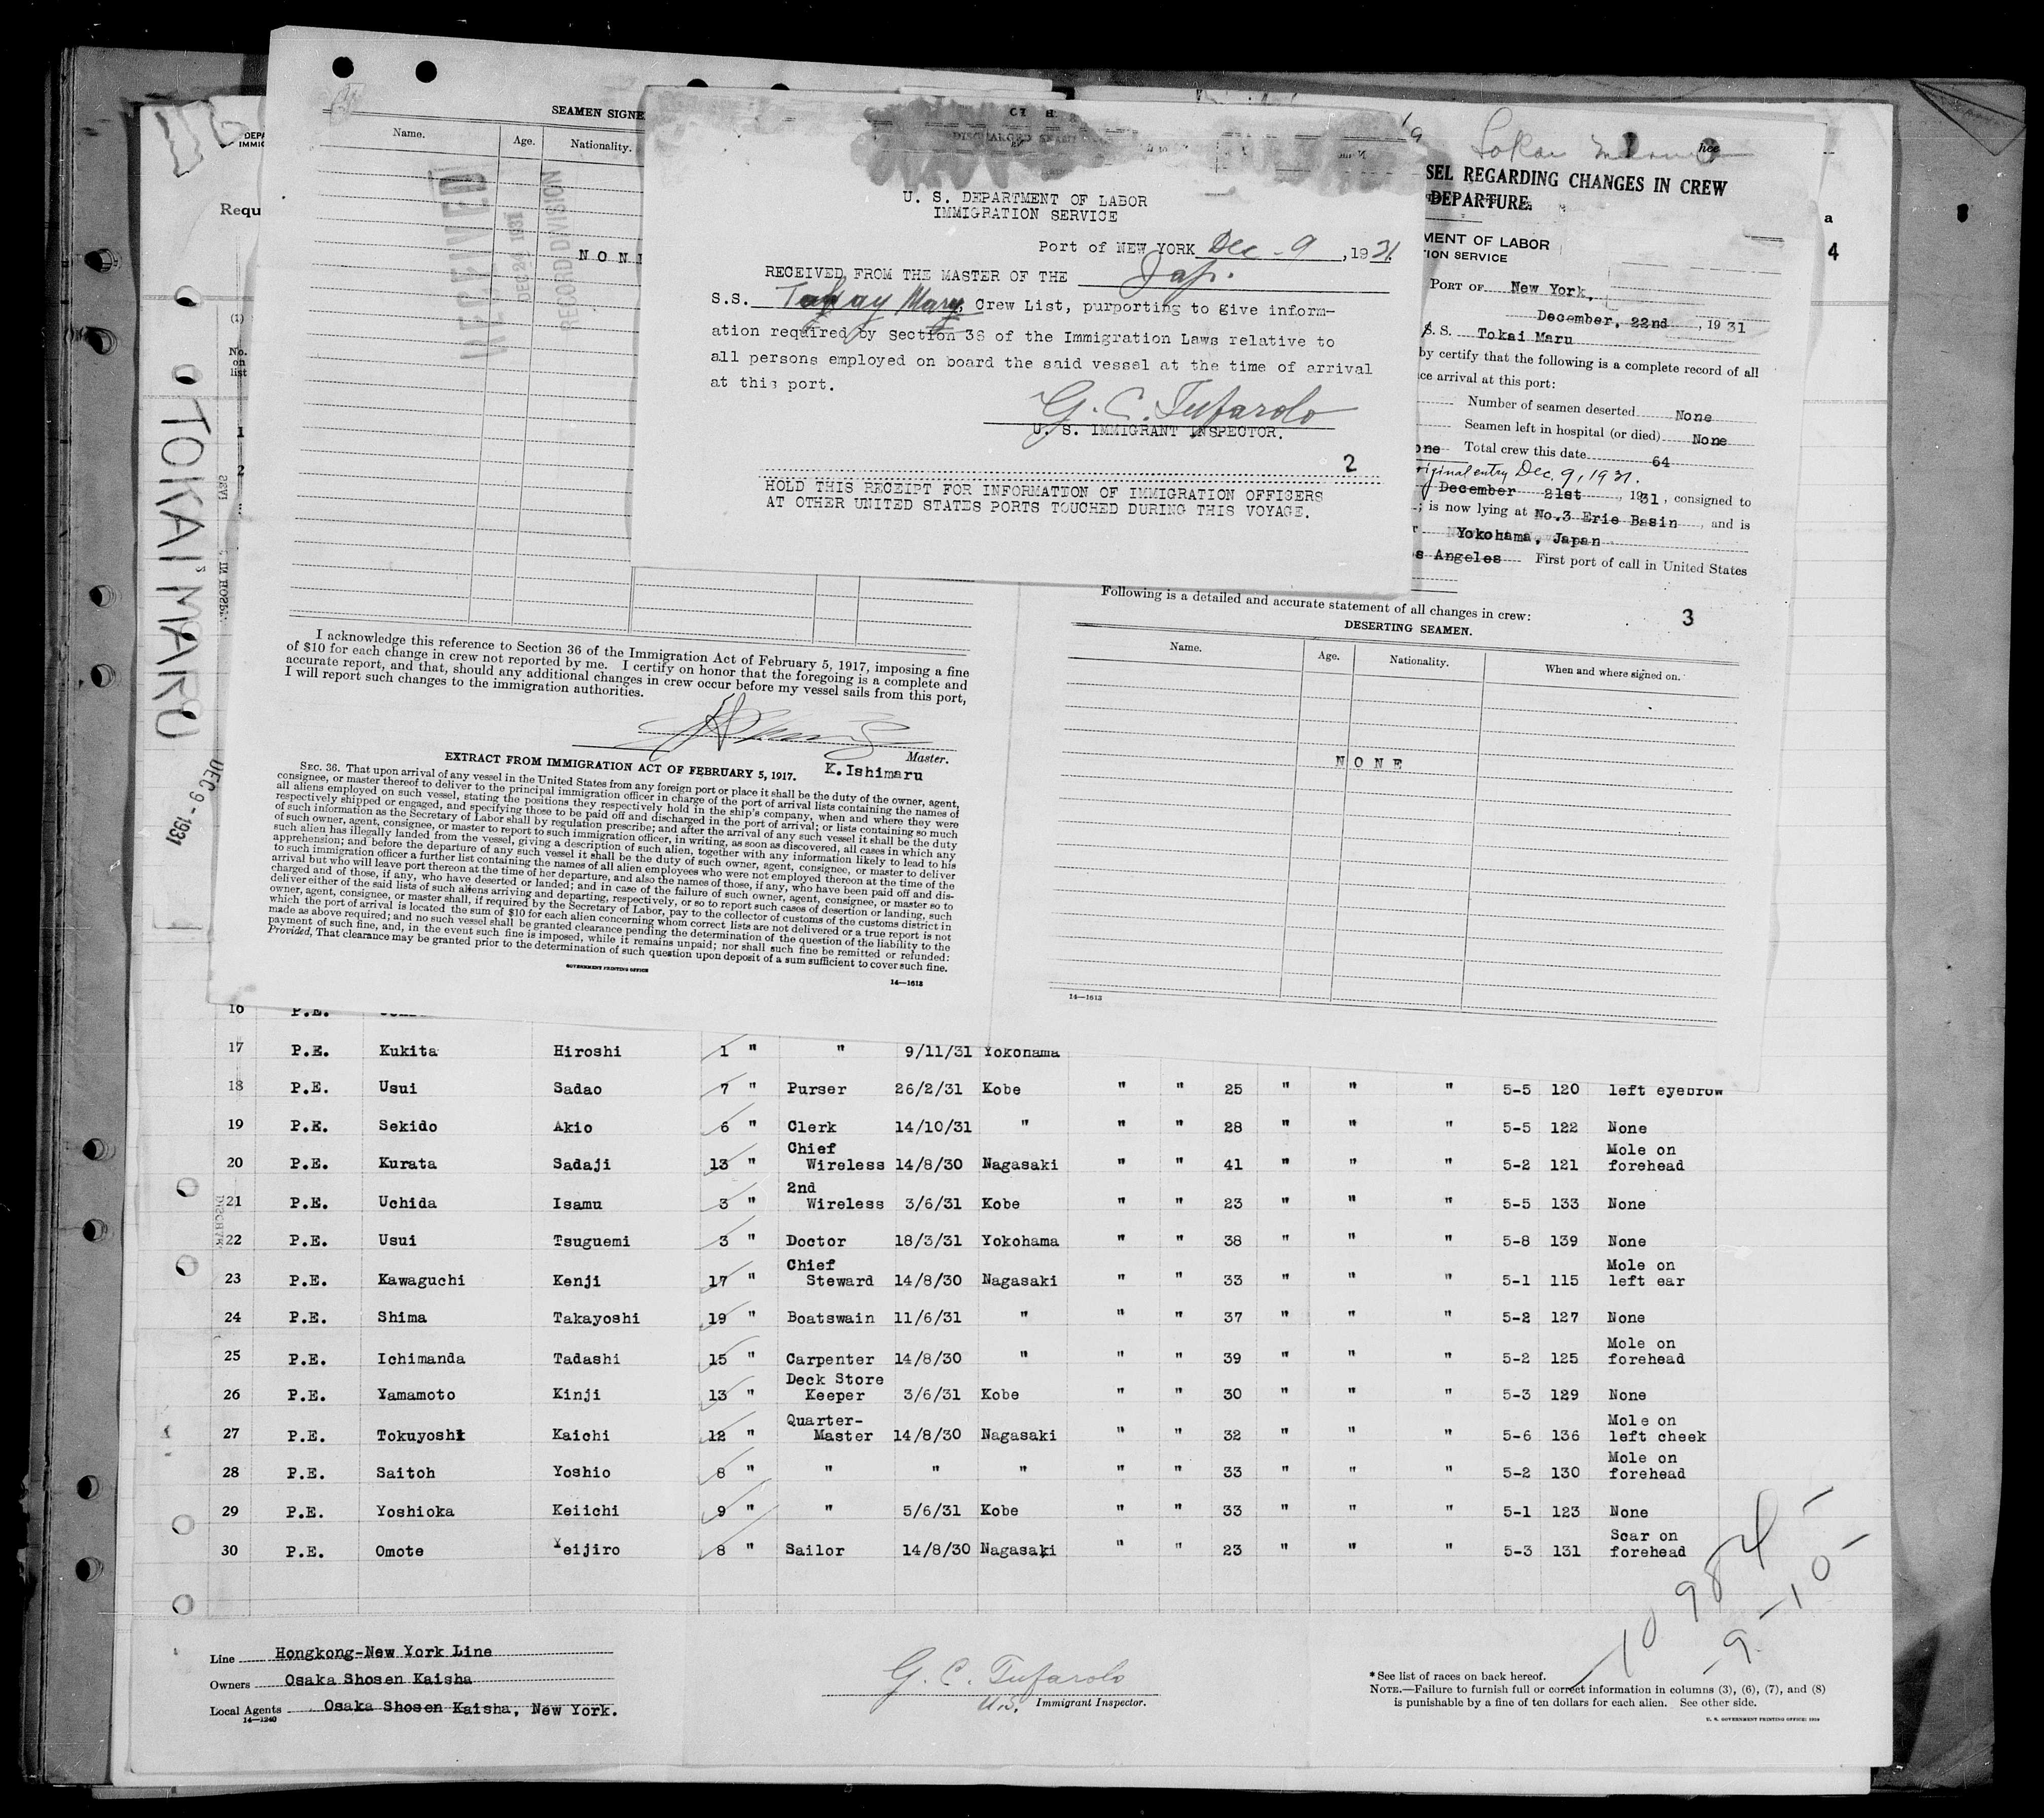 SEAMEN SIGNE
Name. Age. Nationality.
RECEIVED
DEC 24 1931
RECORD DIVISION
NON
I acknowledge this reference to Section 36 of the Immigration Act of February 5, 1917, imposing a fine
of $10 for each change in crew not reported by me. I certify on honor that the foregoing is a complete and
accurate report, and that, should any additional changes in crew occur before my vessel sails from this port,
I will report such changes to the immigration authorities.
Master.
K.Ishimaru
EXTRACT FROM IMMIGRATION ACT OF FEBRUARY 5, 1917.
SEC. 36. That upon arrival of any vessel in the United States from any foreign port or place it shall be the duty of the owner, agent,
consignee, or master thereof to deliver to the principal immigration officer in charge of the port of arrival lists containing the names of
all aliens employed on such vessel, stating the positions they respectively hold in the ship's company, when and where they were
respectively shipped or engaged, and specifying those to be paid off and discharged in the port of arrival; or lists containing so much
of such information as the Secretary of Labor shall by regulation prescribe; and after the arrival of any such vessel it shall be the duty
of such owner, agent, consignee, or master to report to such immigration officer, in writing, as soon as discovered, all cases in which any
such alien has illegally landed from the vessel, giving a description of such alien, together with any information likely to lead to his
apprehension; and before the departure of any such vessel it shall be the duty of such owner, agent, consignee, or master to deliver
to such immigration officer a further list containing the names of all alien employees who were not employed thereon at the time of the
arrival but who will leave port thereon at the time of her departure, and also the names of those, if any, who have been paid off and dis-
charged and of those, if any, who have deserted or landed; and in case of the failure of such owner, agent, consignee, or master so to
deliver either of the said lists of such aliens arriving and departing, respectively, or so to report such cases of desertion or landing, such
owner, agent, consignee, or master shall, if required by the Secretary of Labor, pay to the collector of customs of the customs district in
which the port of arrival is located the sum of $10 for each alien concerning whom correct lists are not delivered or a true report is not
made as above required; and no such vessel shall be granted clearance pending the determination of the question of the liability to the
payment of such fine, and, in the event such fine is imposed, while it remains unpaid; nor shall such fine be remitted or refunded:
Provided, That clearance may be granted prior to the determination of such question upon deposit of a sum sufficient to cover such fine.
GOVERNMENT PRINTING OFFICE
14—1613
DISCHARGED SEAMEN
U. S. DEPARTMENT OF LABOR
IMMIGRATION SERVICE
Port of NEW YORK Dec - 9, 1931
RECEIVED FROM THE MASTER OF THE Jap.
S.S. Tokay Maru, Crew List, purporting to give inform-
ation required by Section 36 of the Immigration Laws relative to
all persons employed on board the said vessel at the time of arrival
at this port.
G. C. Tufarolo
U. S. IMMIGRANT INSPECTOR.
2
HOLD THIS RECEIPT FOR INFORMATION OF IMMIGRATION OFFICERS
AT OTHER UNITED STATES PORTS TOUCHED DURING THIS VOYAGE.
Tokai Maru
SEL REGARDING CHANGES IN CREW
DEPARTURE.
MENT OF LABOR
ION SERVICE
PORT OF New York,
December, 22nd, 1931
S. S. Tokai Maru
by certify that the following is a complete record of all
ce arrival at this port:
Number of seamen deserted None
Seamen left in hospital (or died) None
one Total crew this date 64
riginal entry Dec. 9, 1931.
December 21st, 1931, consigned to
; is now lying at No.3 Erie Basin, and is
r Yokohama, Japan
s Angeles First port of call in United States
Following is a detailed and accurate statement of all changes in crew:
3
DESERTING SEAMEN.
Name. Age. Nationality. When and where signed on.
NONE
14—1613
a
4
DEPA
IMMIG
Requ
(1)
No. on list
1
2
TOKAI MARU
DEC 9 - 1931
16 P.E.
17 P.E. Kukita Hiroshi 1 " " 9/11/31 Yokohama
18 P.E. Usui Sadao 7 " Purser 26/2/31 Kobe " " 25 " " " 5-5 120 left eyebrow
19 P.E. Sekido Akio 6 " Clerk 14/10/31 " " " 28 " " " 5-5 122 None
20 P.E. Kurata Sadaji 13 " Chief Wireless 14/8/30 Nagasaki " " 41 " " " 5-2 121 Mole on forehead
21 P.E. Uchida Isamu 3 " 2nd Wireless 3/6/31 Kobe " " 23 " " " 5-5 133 None
22 P.E. Usui Tsuguemi 3 " Doctor 18/3/31 Yokohama " " 38 " " " 5-8 139 None
23 P.E. Kawaguchi Kenji 17 " Chief Steward 14/8/30 Nagasaki " " 33 " " " 5-1 115 Mole on left ear
24 P.E. Shima Takayoshi 19 " Boatswain 11/6/31 " " " 37 " " " 5-2 127 None
25 P.E. Ichimanda Tadashi 15 " Carpenter 14/8/30 " " " 39 " " " 5-2 125 Mole on forehead
26 P.E. Yamamoto Kinji 13 " Deck Store Keeper 3/6/31 Kobe " " 30 " " " 5-3 129 None
27 P.E. Tokuyoshi Kaichi 12 " Quarter-Master 14/8/30 Nagasaki " " 32 " " " 5-6 136 Mole on left cheek
28 P.E. Saitoh Yoshio 8 " " " " " " 33 " " " 5-2 130 Mole on forehead
29 P.E. Yoshioka Keiichi 9 " " 5/6/31 Kobe " " 33 " " " 5-1 123 None
30 P.E. Omote Yeijiro 8 " Sailor 14/8/30 Nagasaki " " 23 " " " 5-3 131 Scar on forehead
Line Hongkong-New York Line
Owners Osaka Shosen Kaisha
Local Agents Osaka Shosen Kaisha, New York.
14—1240
G. C. Tufarolo
U.S. Immigrant Inspector.
* See list of races on back hereof.
NOTE.—Failure to furnish full or correct information in columns (3), (6), (7), and (8)
is punishable by a fine of ten dollars for each alien. See other side.
U. S. GOVERNMENT PRINTING OFFICE: 1930